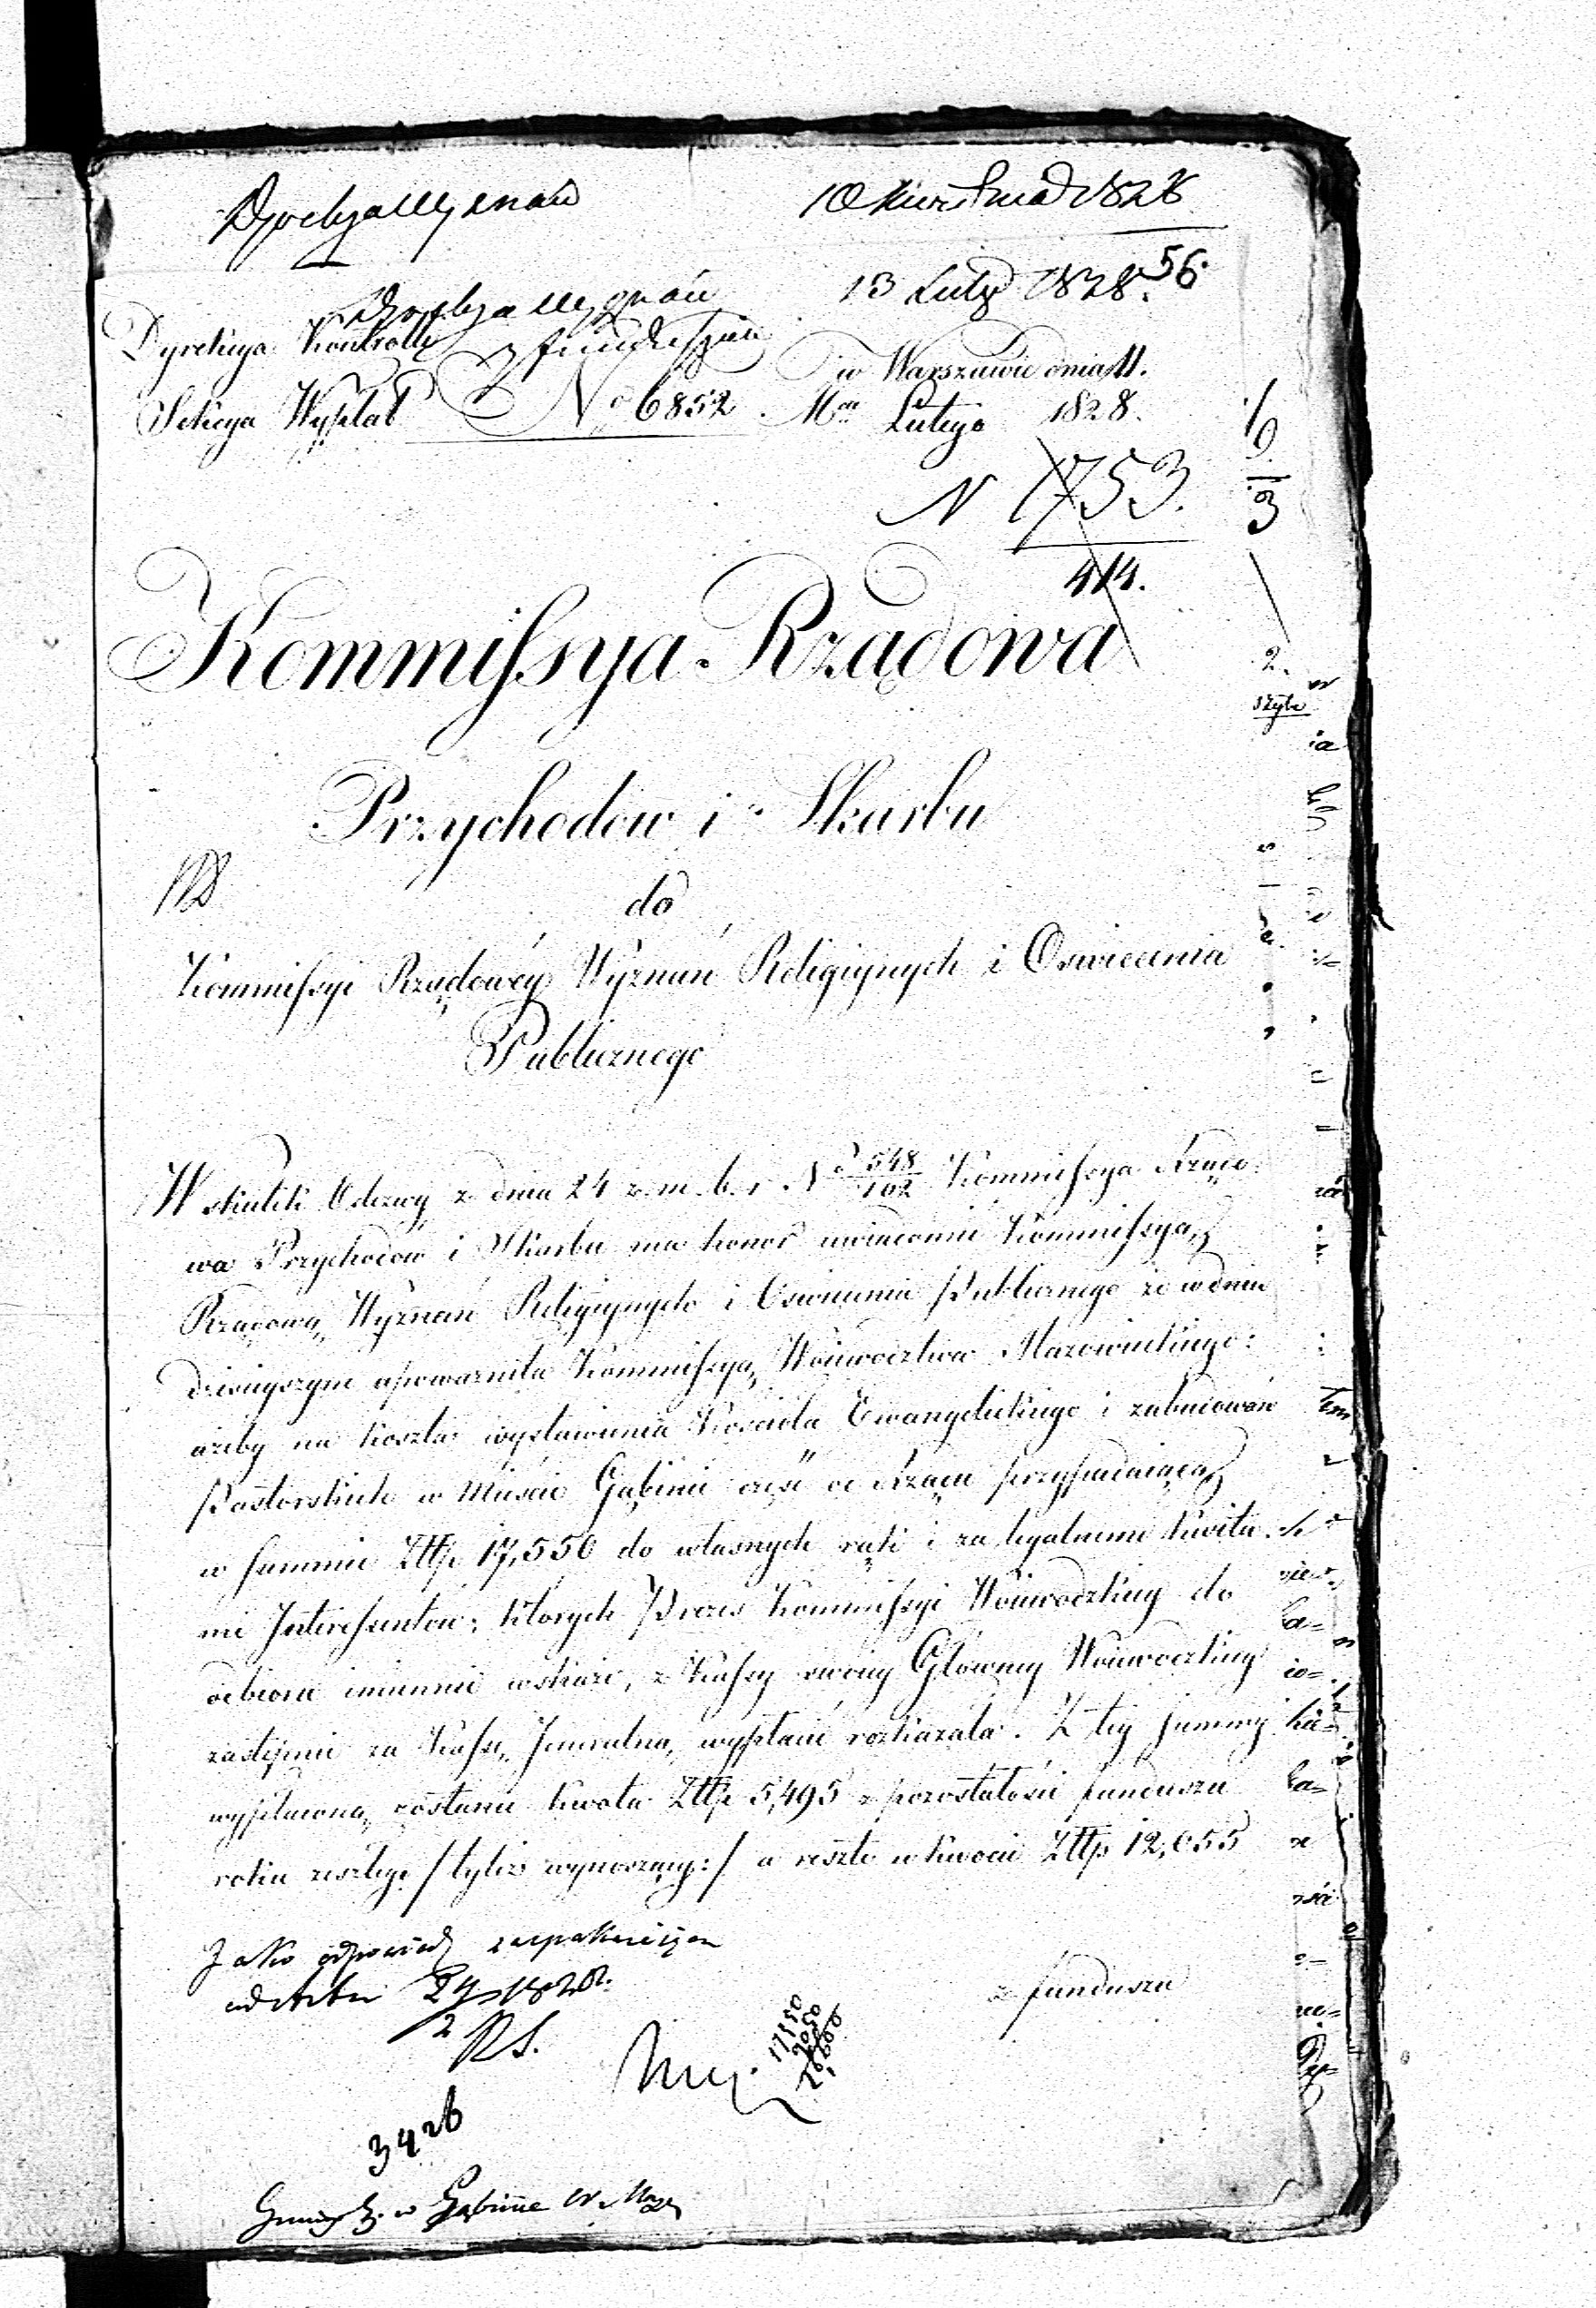 10 Kwietnia 1828
13 Luty 1828. 56.
Dyrekcya Kontrolli z funduszem
w Warszawie dnia 11.
Sekcya Wypłat No 6852. Mca Lutego 1828.
N 1753.
414.
Kommissya Rządowa
Przychodow i Skarbu
do
Kommissyi Rządowey Wyznań Religiynych i Oswiecenia
Publicznego
W skutek Odezwy z dnia 24 z. m. b. r. No 548/102 Kommissya Rządo
wa Przychodow i Skarbu ma honor uwiadomić Kommissyą
Rządową Wyznań Religiynych i Oswiecenia Publicznego że w dniu
dzisieyszym upoważniła Kommissyą Woiewodztwa Mazowieckiego:
ażeby na koszta wystawienia Kościoła Ewangelickiego i zabudowań
Pastorskich w Mieście Gąbinie część od Rządu przypadaiącą
w summie Złtp 17,550 do własnych rąk i za legalnemi kwita
mi Interessentow; ktorych Prezes Kommissyi Woiewodzkiey do
odbioru imiennie wskaże, z Kassy swoiey Głowney Woiewodzkiey
zastępnie za Kassę Jeneralną, wypłacić rozkazała. Z tey summy
wypłaconą zostanie kwota Złtp 5,495 z pozostałości funduszu
roku zeszłego /:tyleż wynoszącey:/ a reszta w kwocie Złtp 12,055
z funduszu
Jako odpowiedź zaspakaiaiąca
ad acta
RS.
17550
9050
26600
3426
w Gąbinie W. Maz.